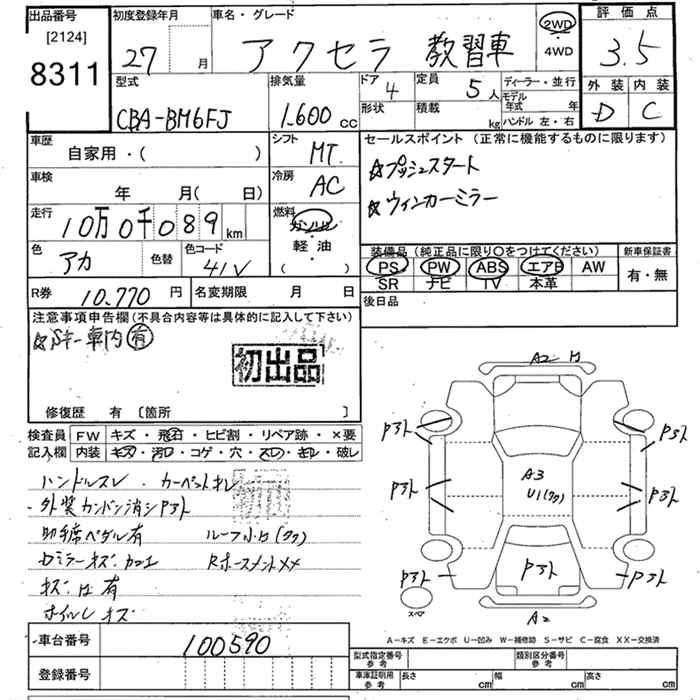 出品番号 初度登録年月 車名・グレード 評価点
[2124]
8311
27 月
アクセラ 教習車
2WD
4WD
3.5
型式
CBA-BM6FJ
排気量
1.600 cc
ドア 4
定員 5人
ディーラー・並行
形状
積載 kg
モデル年式 年
ハンドル 左・右
外装 内装
D C
車歴
自家用・( )
シフト
MT
セールスポイント(正常に機能するものに限ります)
☆プッシュスタート
☆ウィンカーミラー
車検
年 月( 日)
冷房
AC
走行
10万0千089 km
燃料
ガソリン
軽油
( )
色
アカ
色替
色コード
41V
装備品(純正品に限り〇をつけてください)
PS PW ABS エアB AW
SR ナビ TV 本革
新車保証書
有・無
R券 10.770 円
名変期限 月 日
後日品
注意事項申告欄(不具合内容等は具体的に記入して下さい)
車内 有
初出品
修復歴 有 〔箇所 〕
検査員記入欄
FW キズ・飛石・ヒビ割・リペア跡・×要
内装 キズ・汚れ・コゲ・穴・スレ・キレ・破レ
ハンドルスレ・カーペットキレ
外装カンバン消シP3ト
助手席ペダル有 ルーフ小凹(クク)
Dミラーキズカロエ
キズ凹有
ホイルレキズ
A2 凹
P3ト
P3ト
P3ト
P3ト
A3
U1(クク)
P3ト
P3ト
P3ト
スペア
A2
A-キズ E-エクボ U-凹み W-補修跡 S-サビ C-腐食 XX-交換済
車台番号 100590
登録番号
型式指定番号 参考
類別区分番号 参考
車庫証明用 参考
長さ cm
幅 cm
高さ cm